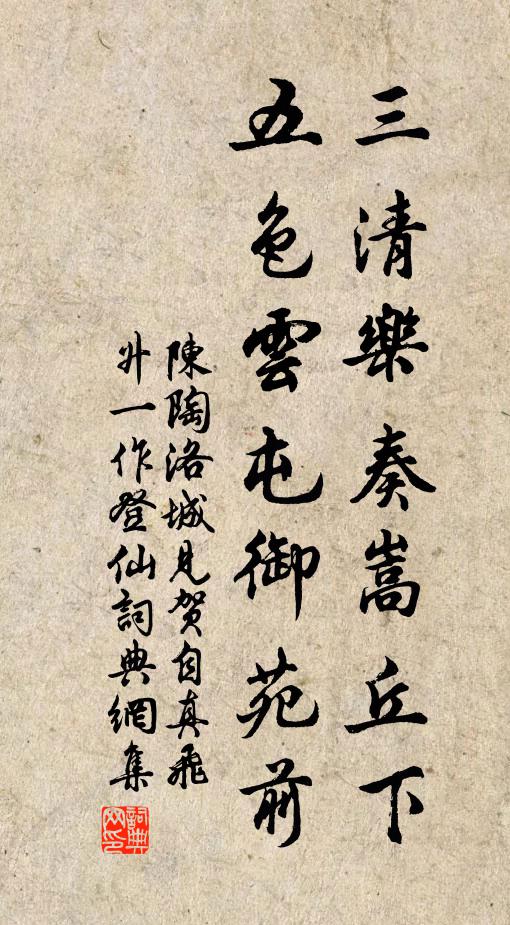 三清樂奏嵩丘下
五色雲屯御苑前
陳陶洛城見賀自真飛
升一作登仙詞典網集
詞典網印